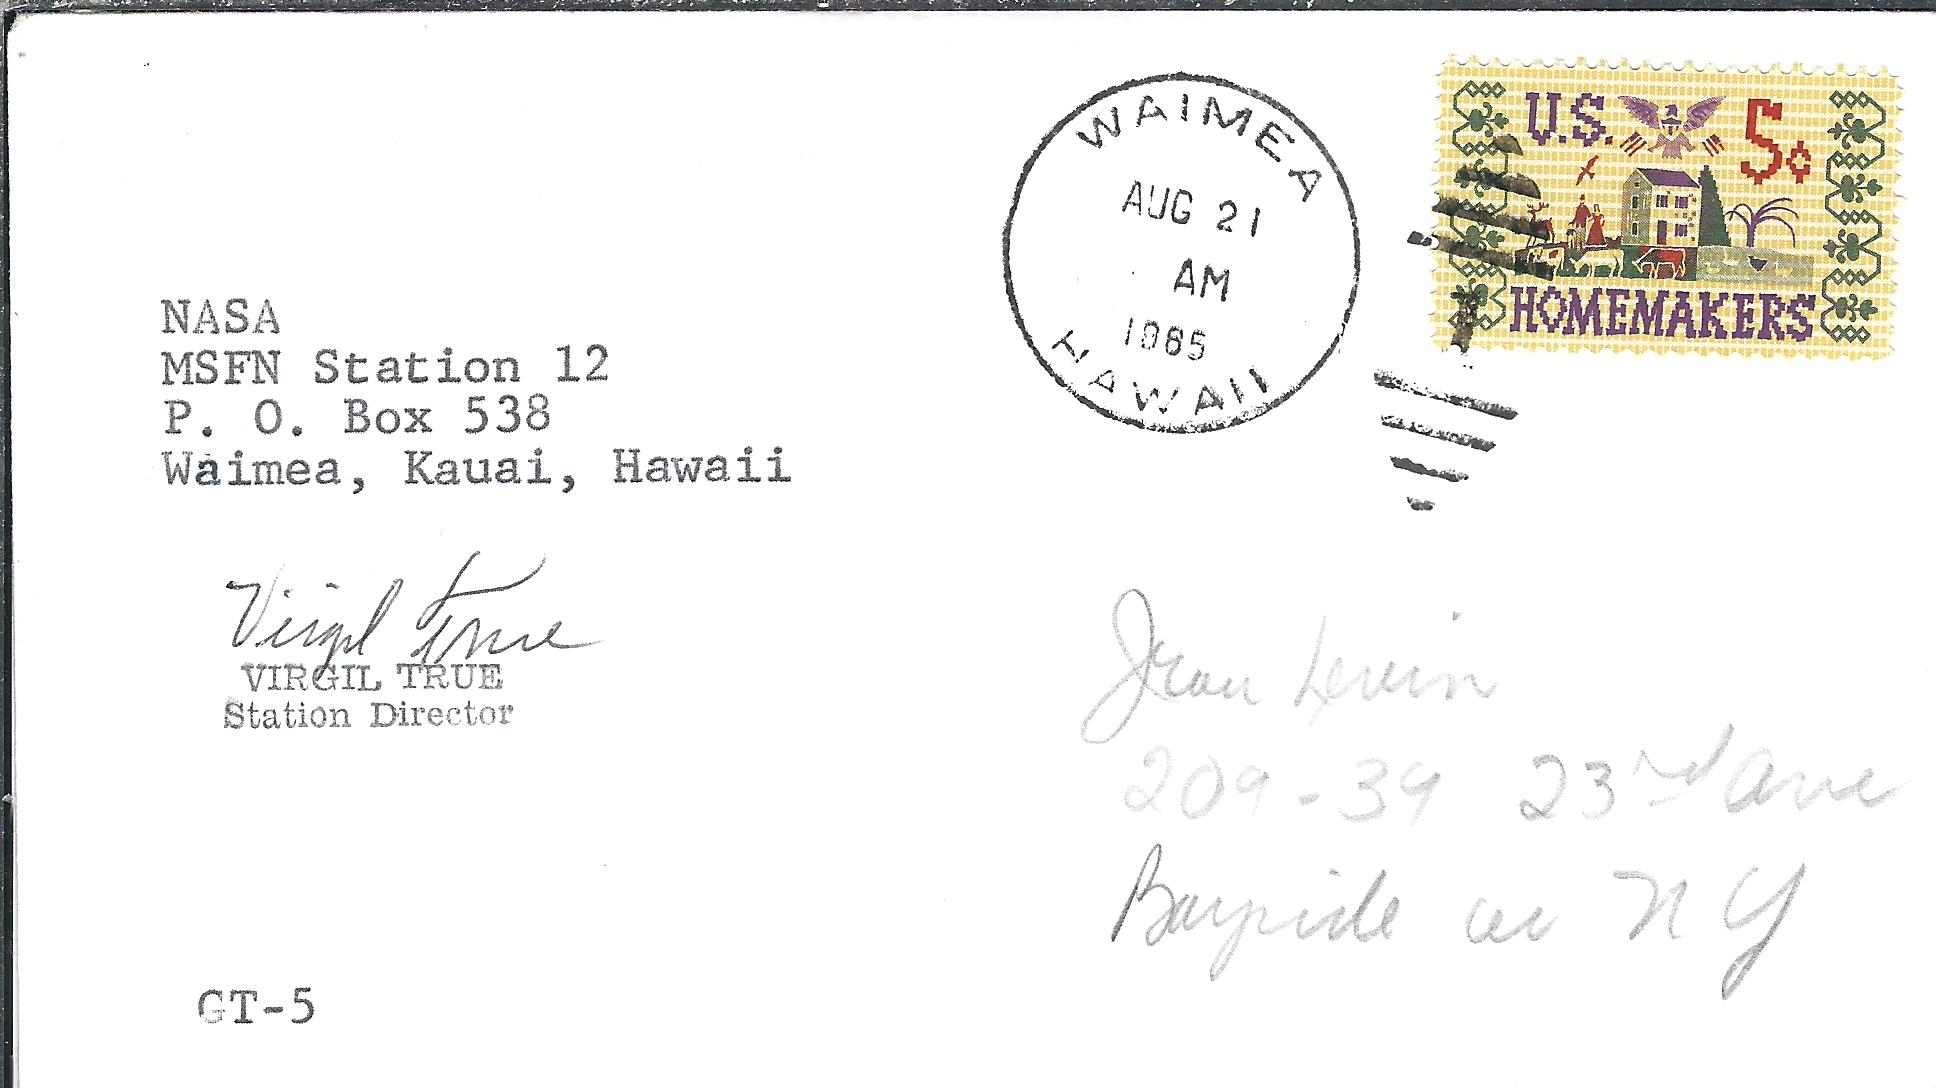 NASA
MSFN Station 12
P. O. Box 538
Waimea, Kauai, Hawaii
Virgil True
VIRGIL TRUE
Station Director
GT-5
WAIMEA
AUG 21
AM
1965
HAWAII
U.S. 5¢
HOMEMAKERS
Jean Levin
209-39 23rd Ave
Bayside NY